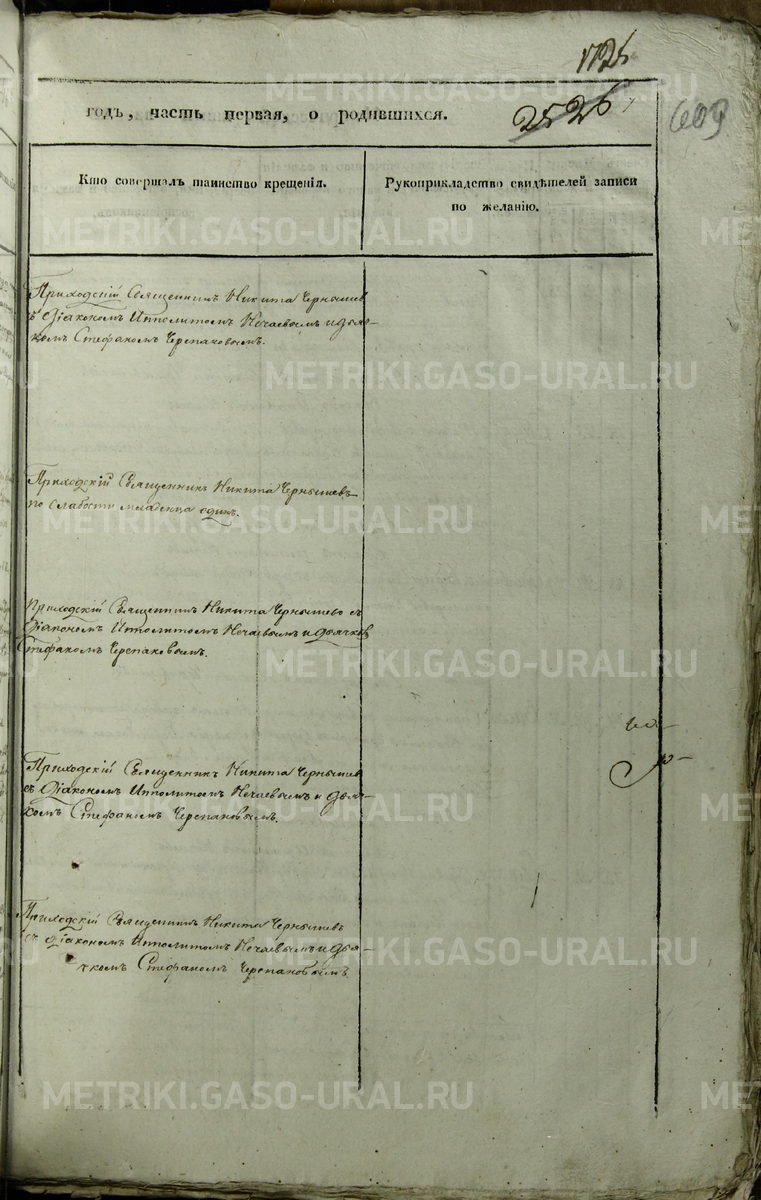 1725
годъ, часть первая, о родившихся.
2526
609
Кто совершалъ таинство крещенія.
Рукоприкладство свидѣтелей записи
по желанію.
Приходскій Священникъ Никита Чернышев
съ Діакономъ Ипполитомъ Нечаевымъ и дья-
комъ Стефаномъ Черепановымъ.
Приходскій Священникъ Никита Чернышевъ
по слабости младенца одинъ.
Приходскій Священникъ Никита Чернышевъ съ
Діакономъ Ипполитомъ Нечаевымъ и дьячков
Стефаномъ Черепановымъ.
Приходскій Священникъ Никита Чернышев
съ Діакономъ Ипполитомъ Нечаевымъ и дья-
комъ Стефаномъ Черепановымъ.
Приходскій Священникъ Никита Чернышевъ
съ Діакономъ Ипполитомъ Нечаевымъ и дья-
чкомъ Стефаномъ Черепановымъ
METRIKI.GASO-URAL.RU